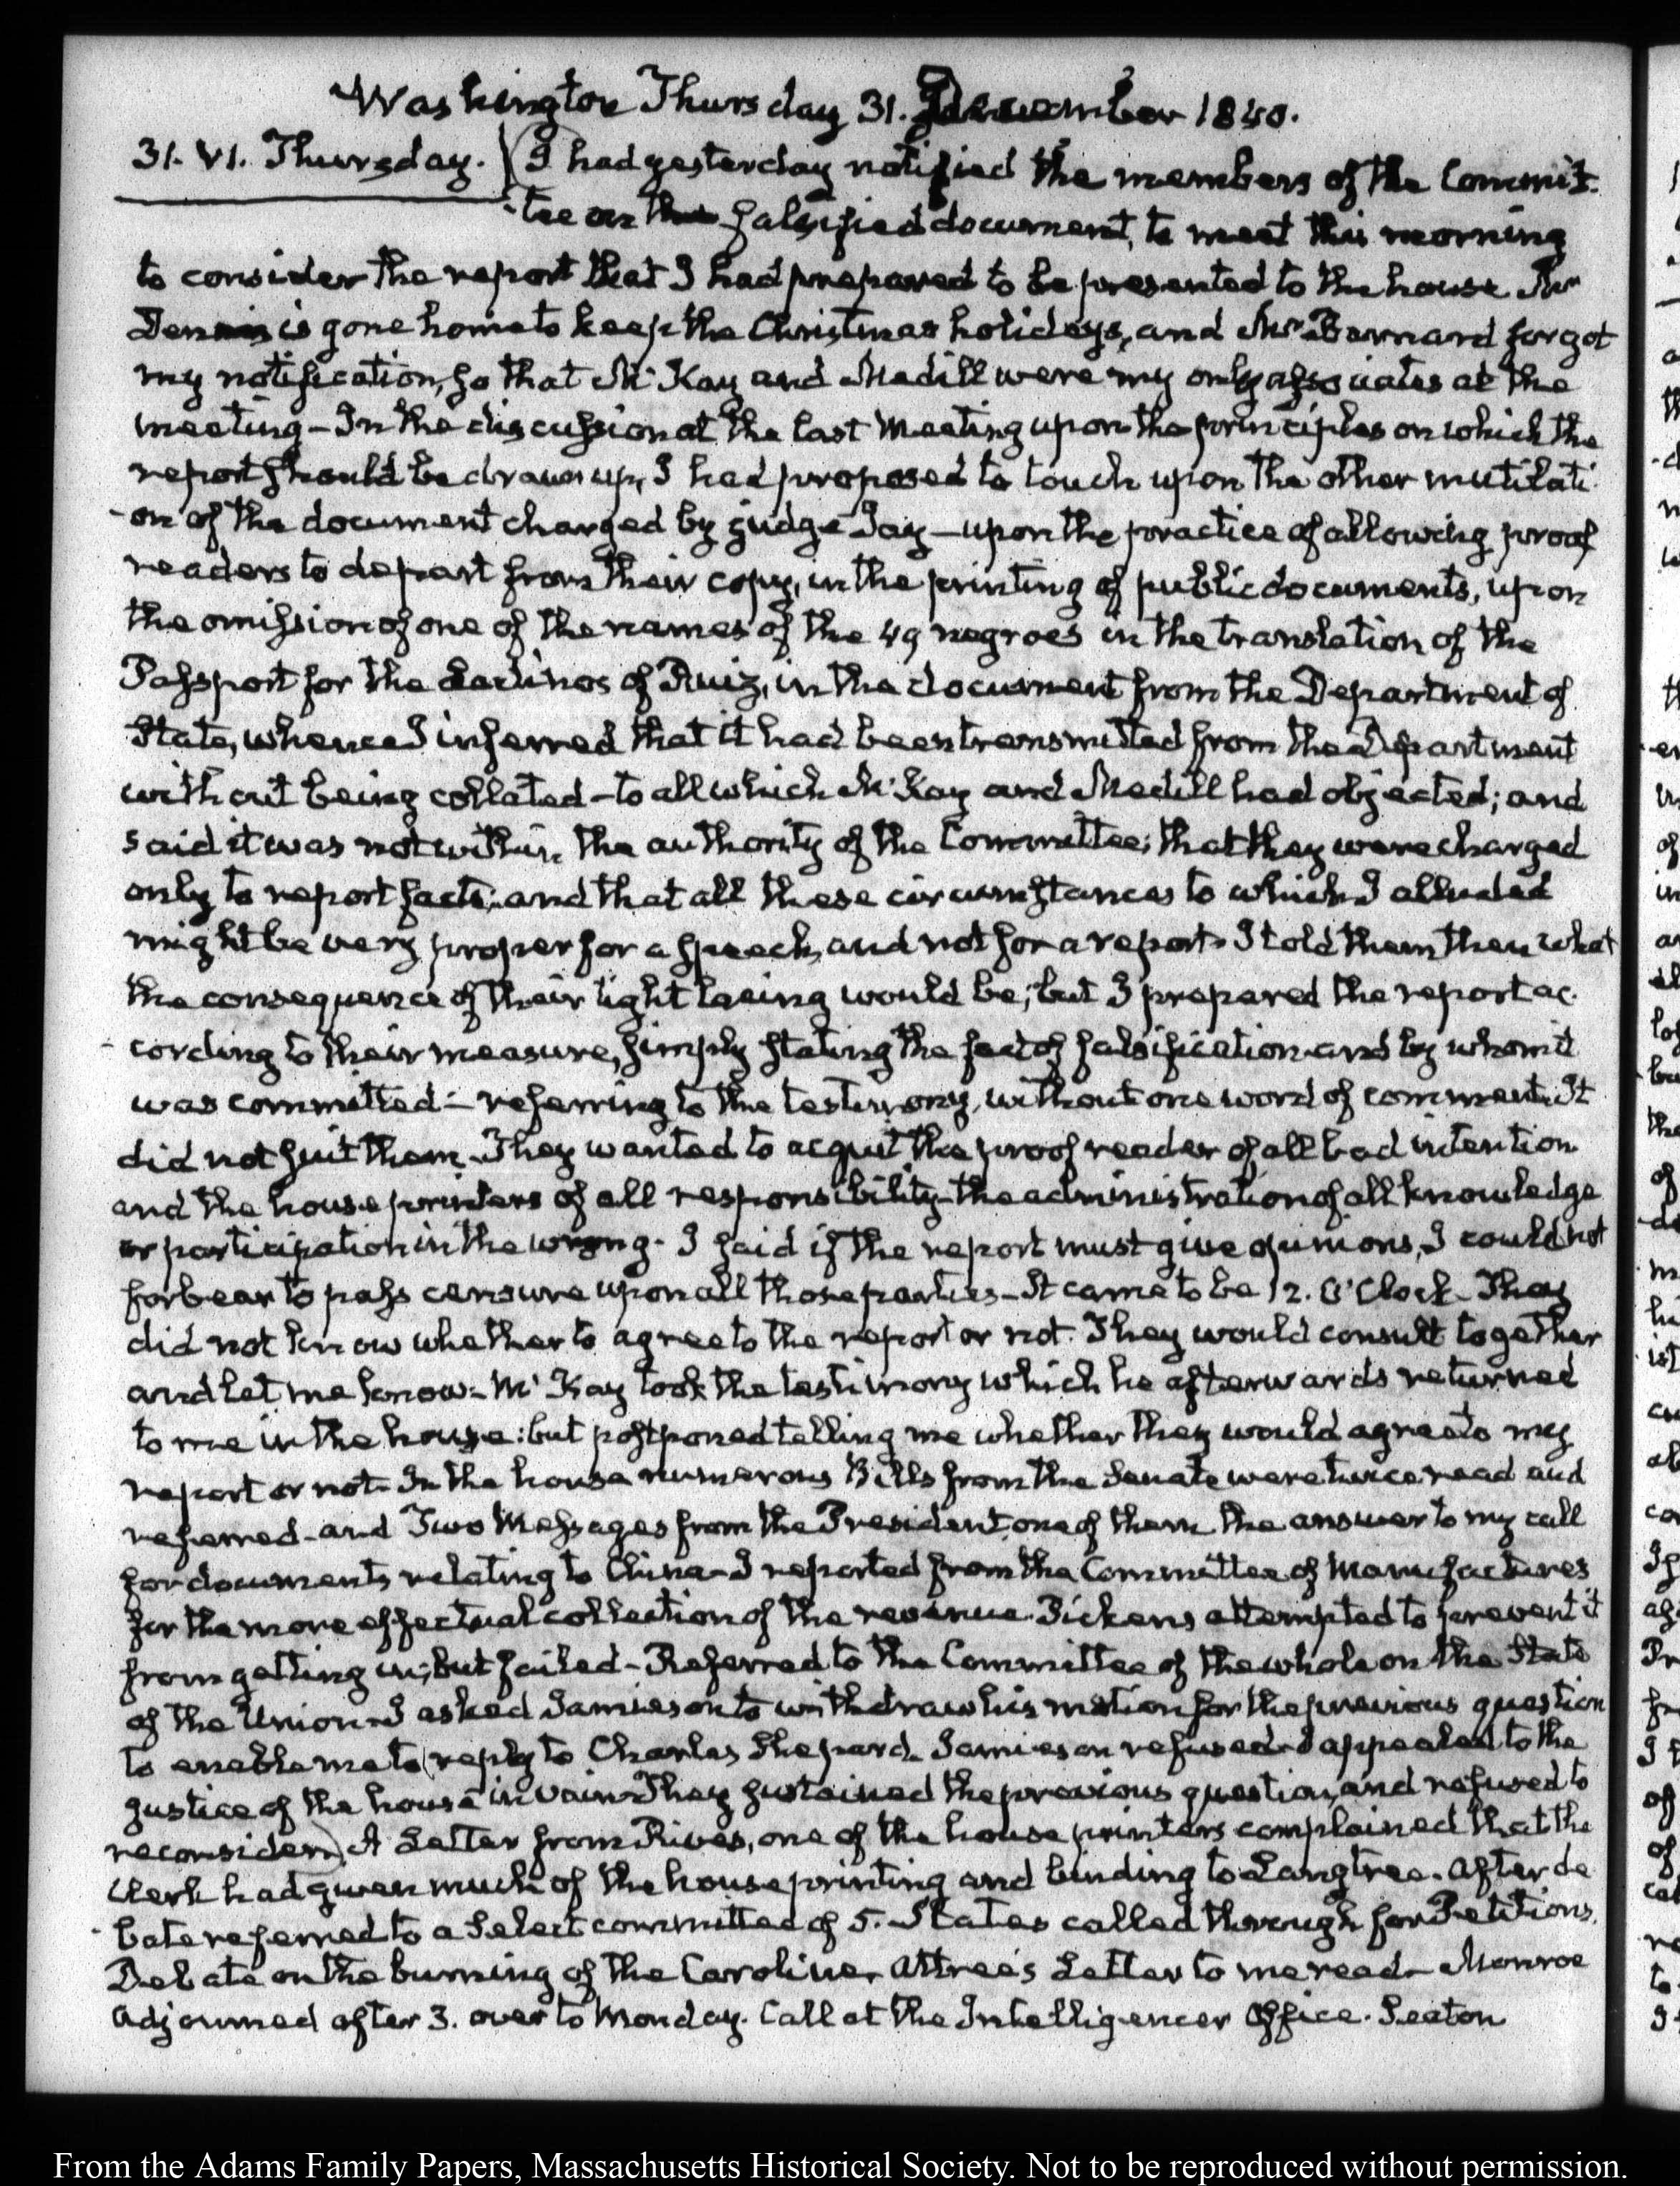 Washington Thursday 31. December 1840.
31. VI. Thursday. (I had yesterday notified the members of the Commit-
-tee on the falsified document, to meet this morning
to consider the report that I had prepared to be presented to the house Mr
Dennis is gone home to keep the Christmas holidays, and Mr Barnard forgot
my notification, so that McKay and Medill were my only associates at the
meeting – In the discussion at the last Meeting upon the principles on which the
report should be drawn up, I had proposed to touch upon the other mutilati-
-on of the document charged by judge Jay – upon the practice of allowing proof
readers to depart from their copy, in the printing of public documents, upon
the omission of one of the names of the 49 negroes in the translation of the
Passport for the Ladinos of Ruiz, in the document from the Department of
State, whence I inferred that it had been transmitted from the Department
without being collated – to all which McKay and Medill had objected; and
said it was not within the authority of the Committee; that they were charged
only to report facts; and that all these circumstances to which I alluded
might be very proper for a speech, and not for a report. I told them then what
the consequence of their tight lacing would be; but I prepared the report ac-
-cording to their measure, simply stating the fact of falsification and by whom it
was committed – referring to the testimony, without one word of comment. It
did not suit them. They wanted to acquit the proof reader of all bad intention
and the house printers of all responsibility – the administration of all knowledge
or participation in the wrong. I said if the report must give opinions, I could not
forbear to pass censure upon all those parties – It came to be 12. O'Clock. They
did not know whether to agree to the report or not. They would consult together
and let me know – McKay took the testimony which he afterwards returned
to me in the house: but postponed telling me whether they would agree to my
report or not. In the house numerous Bills from the Senate were twice read and
referred – and Two Messages from the President one of them the answer to my call
for documents relating to China – I reported from the Committee of Manufactures
for the more effectual collection of the revenue. Pickens attempted to prevent it
from getting in; but failed – Referred to the Committee of the whole on the State
of the Union – I asked Jamieson to withdraw his motion for the previous question
to enable me to (reply to Charles Shepard. Jamieson refused – I appealed to the
justice of the house in vain – They sustained the previous question, and refused to
reconsider). A Letter from Rives, one of the house printers complained that the
Clerk had given much of the house printing and binding to Langtree. After de
-bate referred to a Select committee of 5. States called through for Petitions.
Debate on the burning of the Caroline. Attree's Letter to me read – Monroe
Adjourned after 3. over to Monday. Call at the Intelligencer Office. Seaton
From the Adams Family Papers, Massachusetts Historical Society. Not to be reproduced without permission.